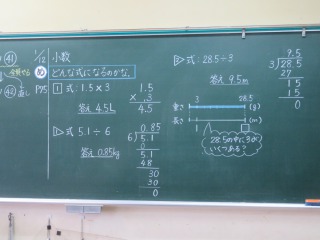 41
1/12
小数
10
どんな式になるのかな。
42
P75
1 式:1.5×3
1.5
× 3
4.5
答え 4.5L
式 5.1÷6
0.85
6)5.1
0
5.1
48
30
30
0
答え 0.85kg
式:28.5÷3
答え 9.5m
9.5
3)28.5
27
15
15
0
3
28.5
重さ
(g)
長さ
(m)
1
□
28.5の中に3が
いくつある?